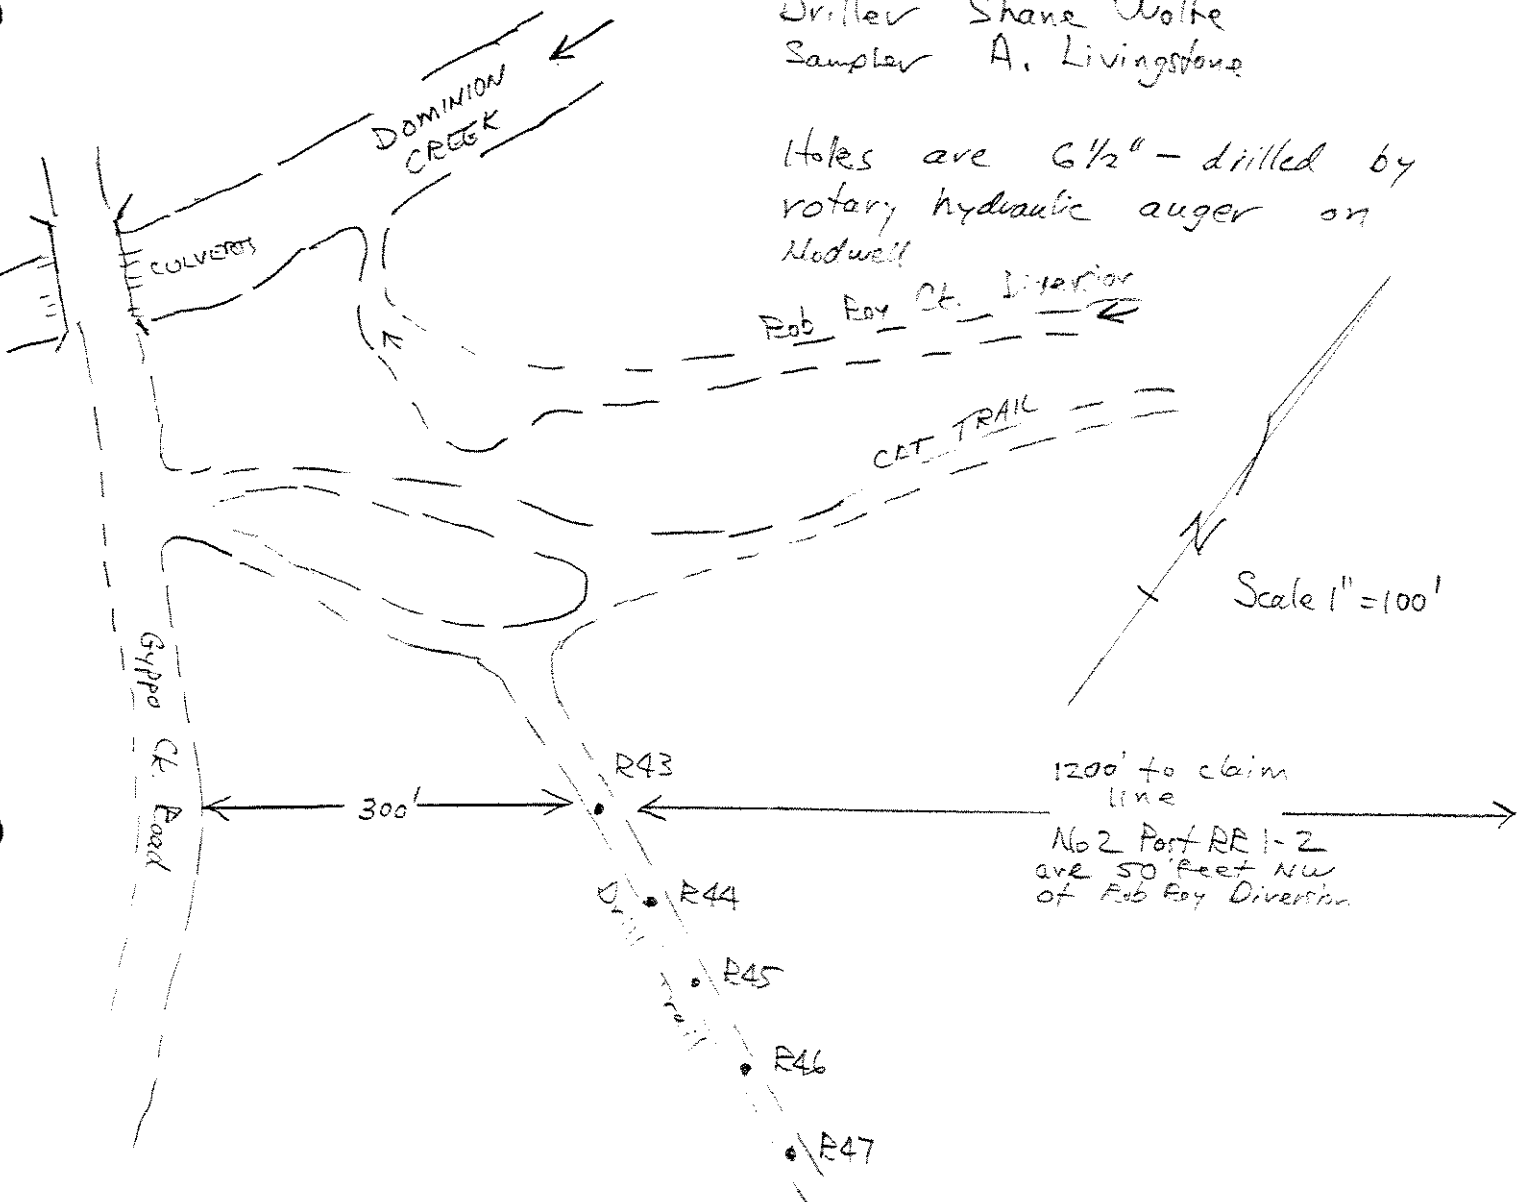 Driller Shane Wolfe
Sampler A. Livingstone
Holes are 6½" - drilled by
rotary hydraulic auger on
Nodwell
DOMINION
CREEK
CULVERTS
Rob Roy Ck. Diversion
CAT TRAIL
N
Scale 1" = 100'
Gyppo Ck. Road
300'
R43
1200' to claim
line
No 2 Post RR 1-2
are 50 feet NW
of Rob Roy Diversion
R44
Drill Trail
R45
R46
R47